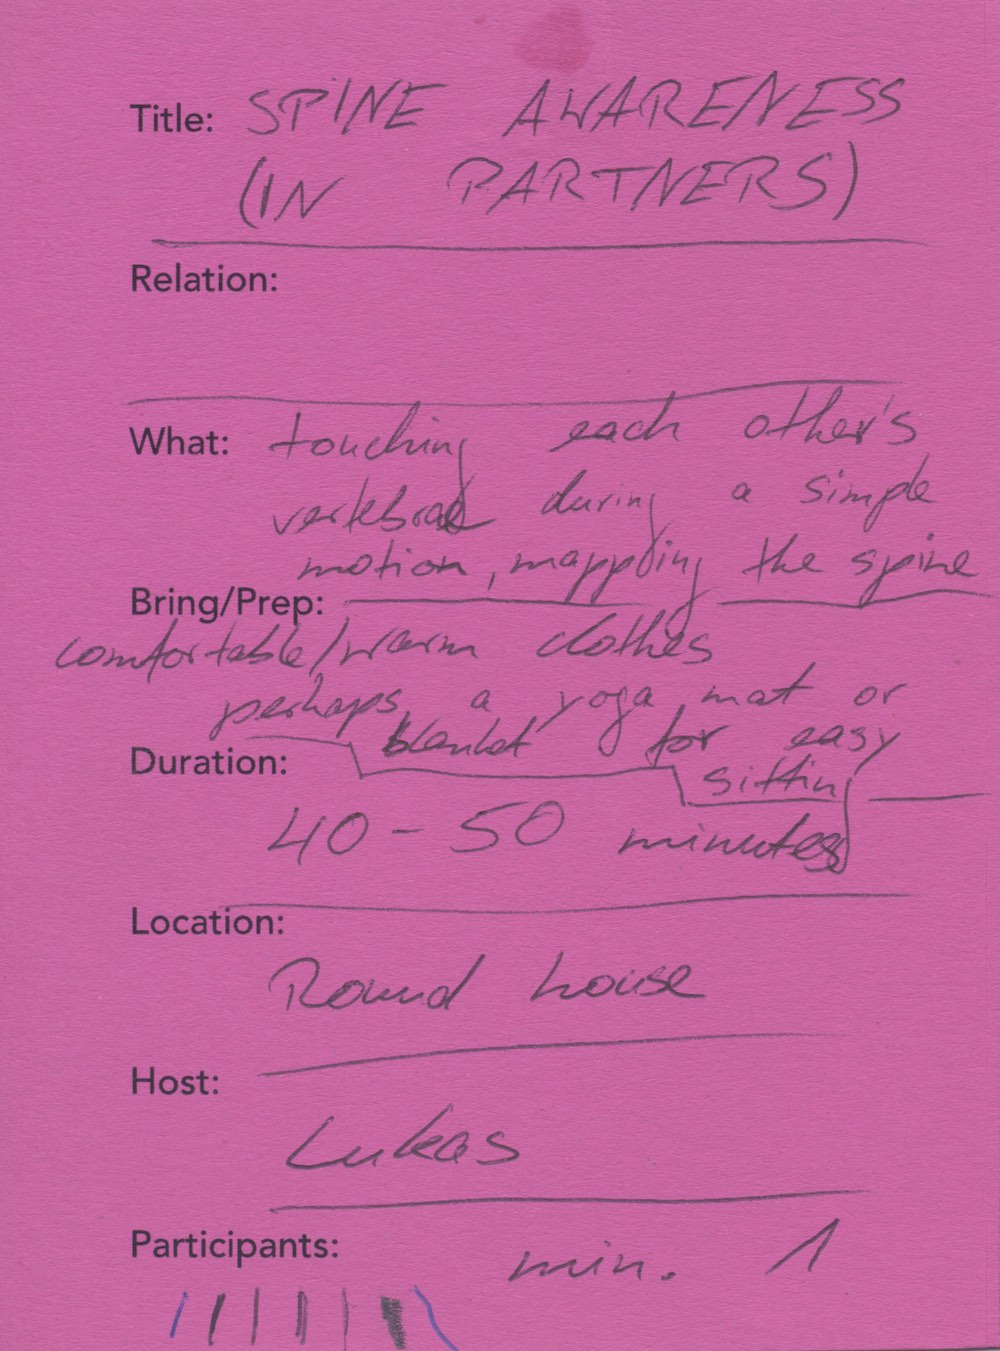 Title: SPINE AWARENESS
(IN PARTNERS)
Relation:
What: touching each other's
vertebrae during a simple
motion, mapping the spine
Bring/Prep:
comfortable/warm clothes
perhaps a yoga mat or
blanket for easy
Duration: sitting
40 - 50 minutes
Location:
Round house
Host:
Lukas
Participants: min. 1